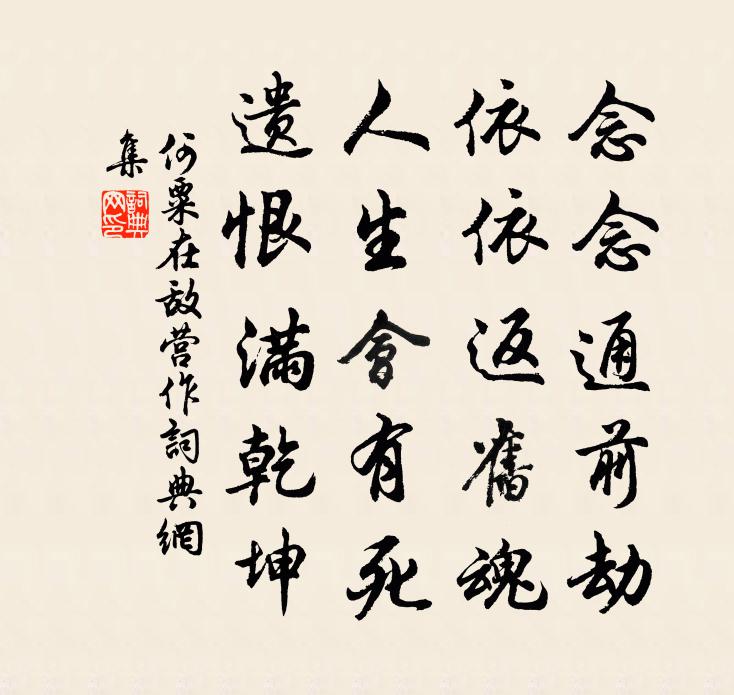 念念通前劫
依依返舊魂
人生會有死
遺恨滿乾坤
何粟在敵營作詞典網
集
詞典
網印